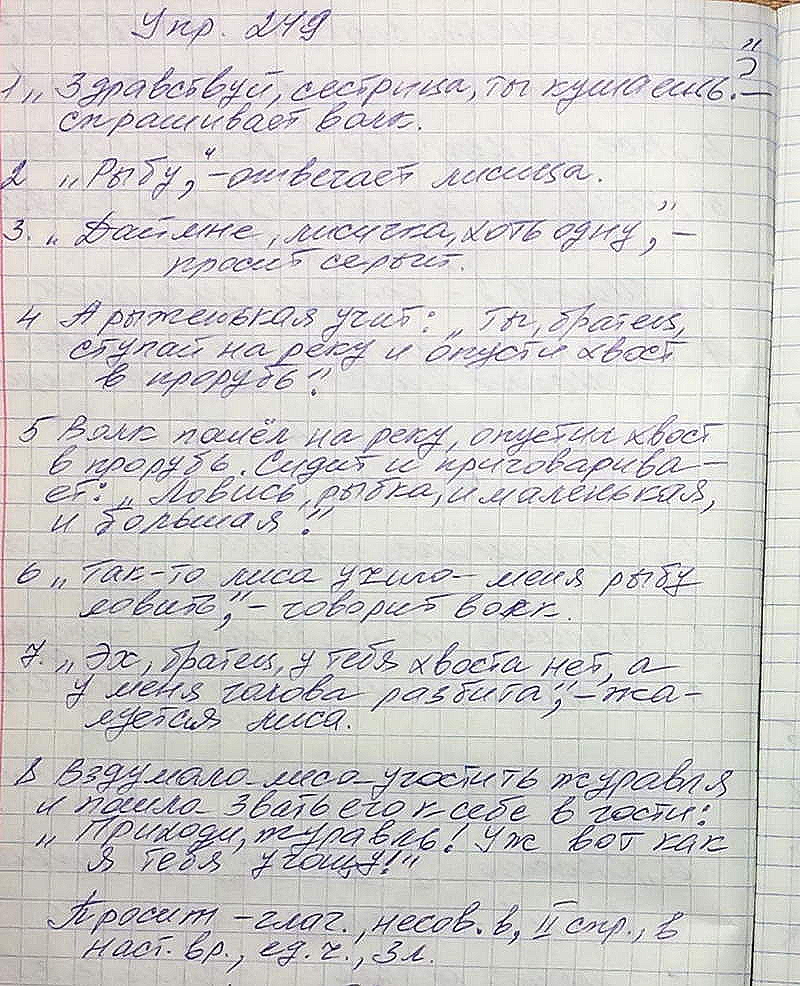 Упр. 249
1 „Здравствуй, сестрица, ты кушаешь?" –
спрашивает волк.
2 „Рыбу", – отвечает лисица.
3. „Дай мне, лисичка, хоть одну", –
просит серый.
4 А рыженькая учит: „Ты, братец,
ступай на реку и опусти хвост
в прорубь".
5 Волк пошёл на реку, опустил хвост
в прорубь. Сидит и приговарива-
ет: „Ловись, рыбка, и маленькая,
и большая!"
6 „Так-то лиса учила меня рыбу
ловить", – говорит волк.
7. „Эх, братец, у тебя хвоста нет, а
у меня голова разбита", – жа-
луется лиса.
8 Вздумала лиса угостить журавля
и пошла звать его к себе в гости:
„Приходи, журавль! Уж вот как
я тебя угощу!"
Просит – глаг., несов. в, II спр., в
наст. вр., ед. ч., 3 л.